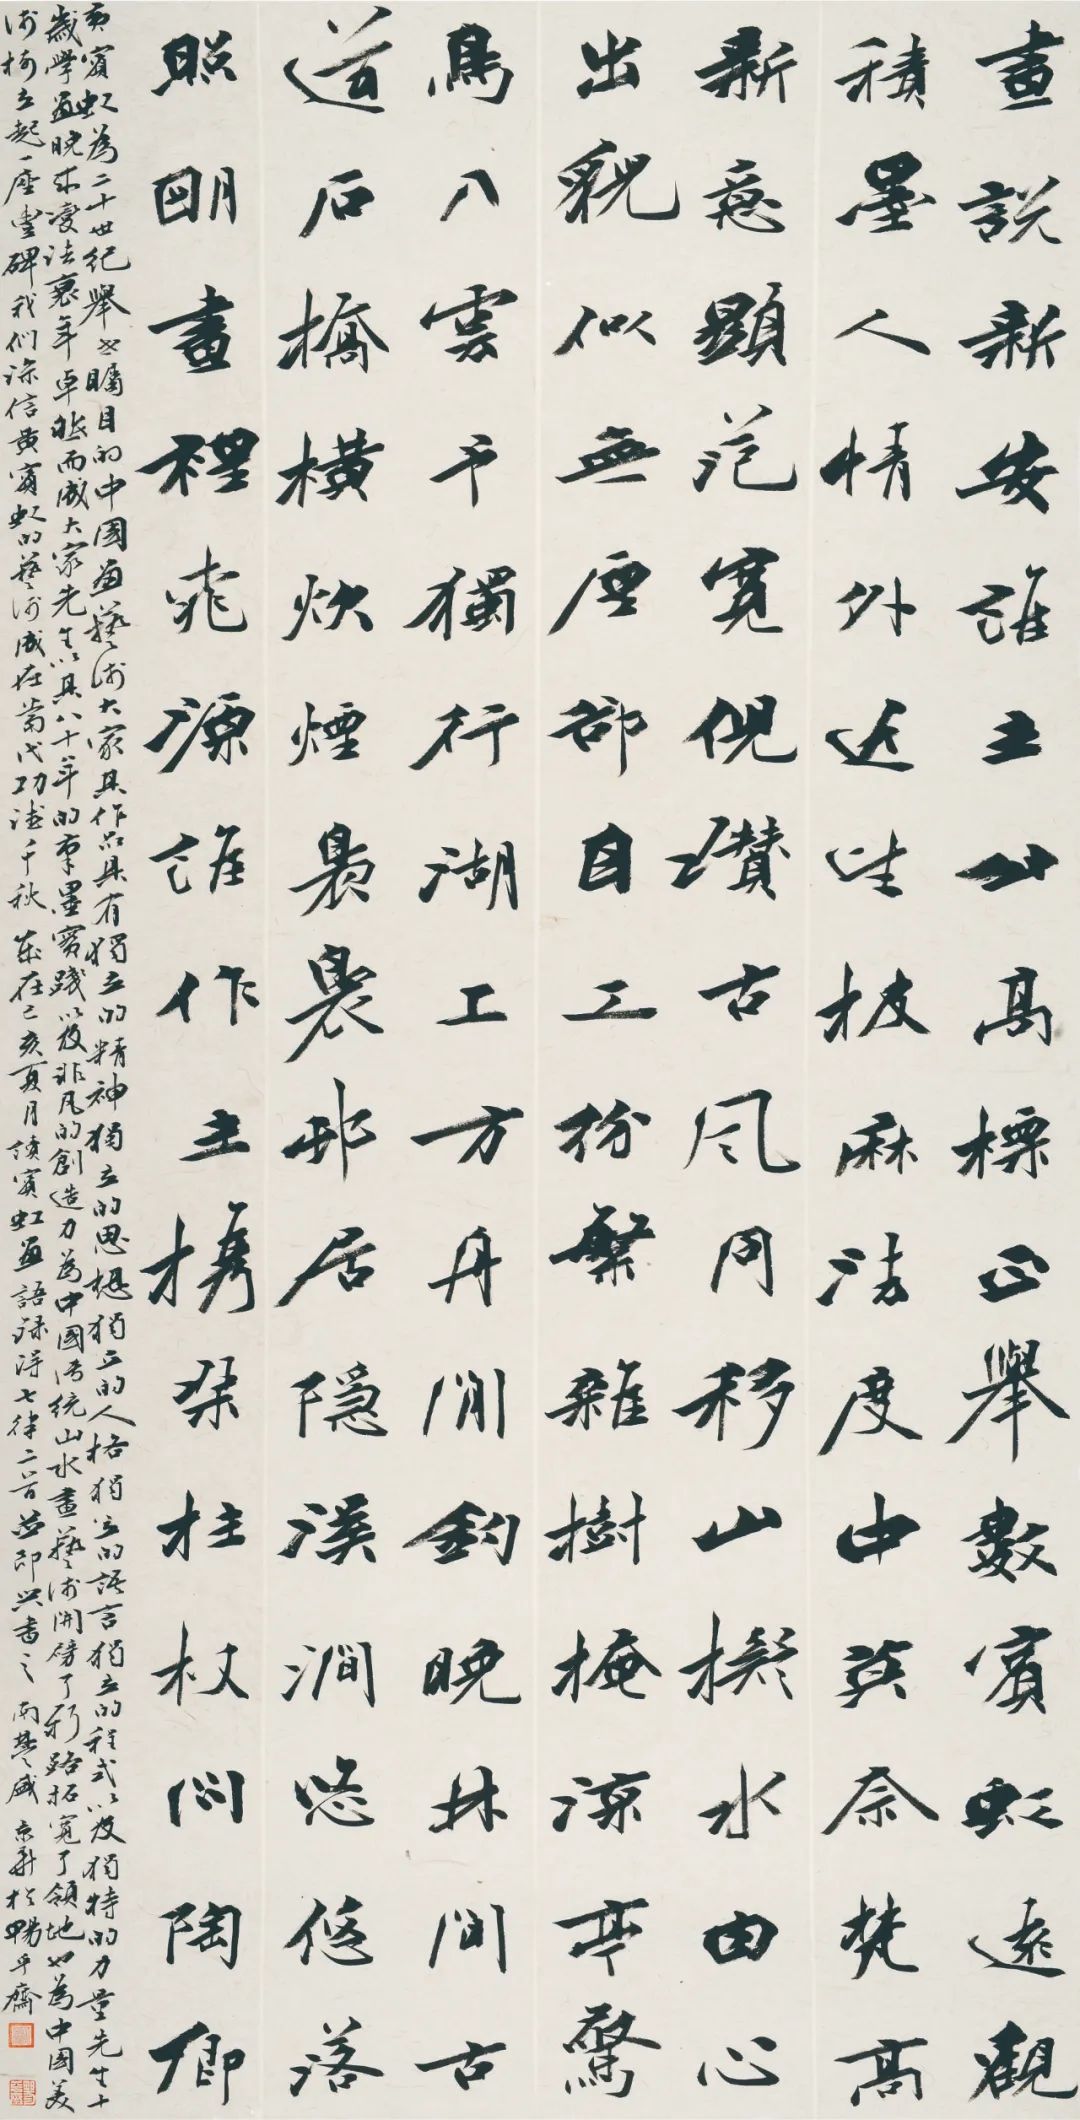 畫說新安誰主高標正舉數賓虹遠觀
積墨人情外近望披麻法度中莫奈梵高
新意顯范寬倪瓚古風同移山擬水由心
出貌似無塵却自工紛繁雜樹掩涼亭驚
鳥入雲予獨行湖上方舟閒釣晚林間古
道石橋橫炊煙裊裊邨居隱溪澗悠悠落
照明畫裡桃源誰作主携琴柱杖問陶卿
黃賓虹為二十世紀舉世矚目的中國畫藝術大家其作品具有獨立的精神獨立的思想獨立的人格獨立的語言獨立的程式以及獨特的力量先生十
歲學畫晚求變法衰年卓然而成大家先生以其八十年的筆墨實踐以及非凡的創造力為中國傳統山水畫藝術開辟了新路拓寬了領地也為中國美
術樹立起一座豐碑我们深信黃賓虹的藝術成在當代功德千秋 歲在己亥夏月讀賓虹畫語錄得七律二首並即興書之 南楚盛京華於暢平齋